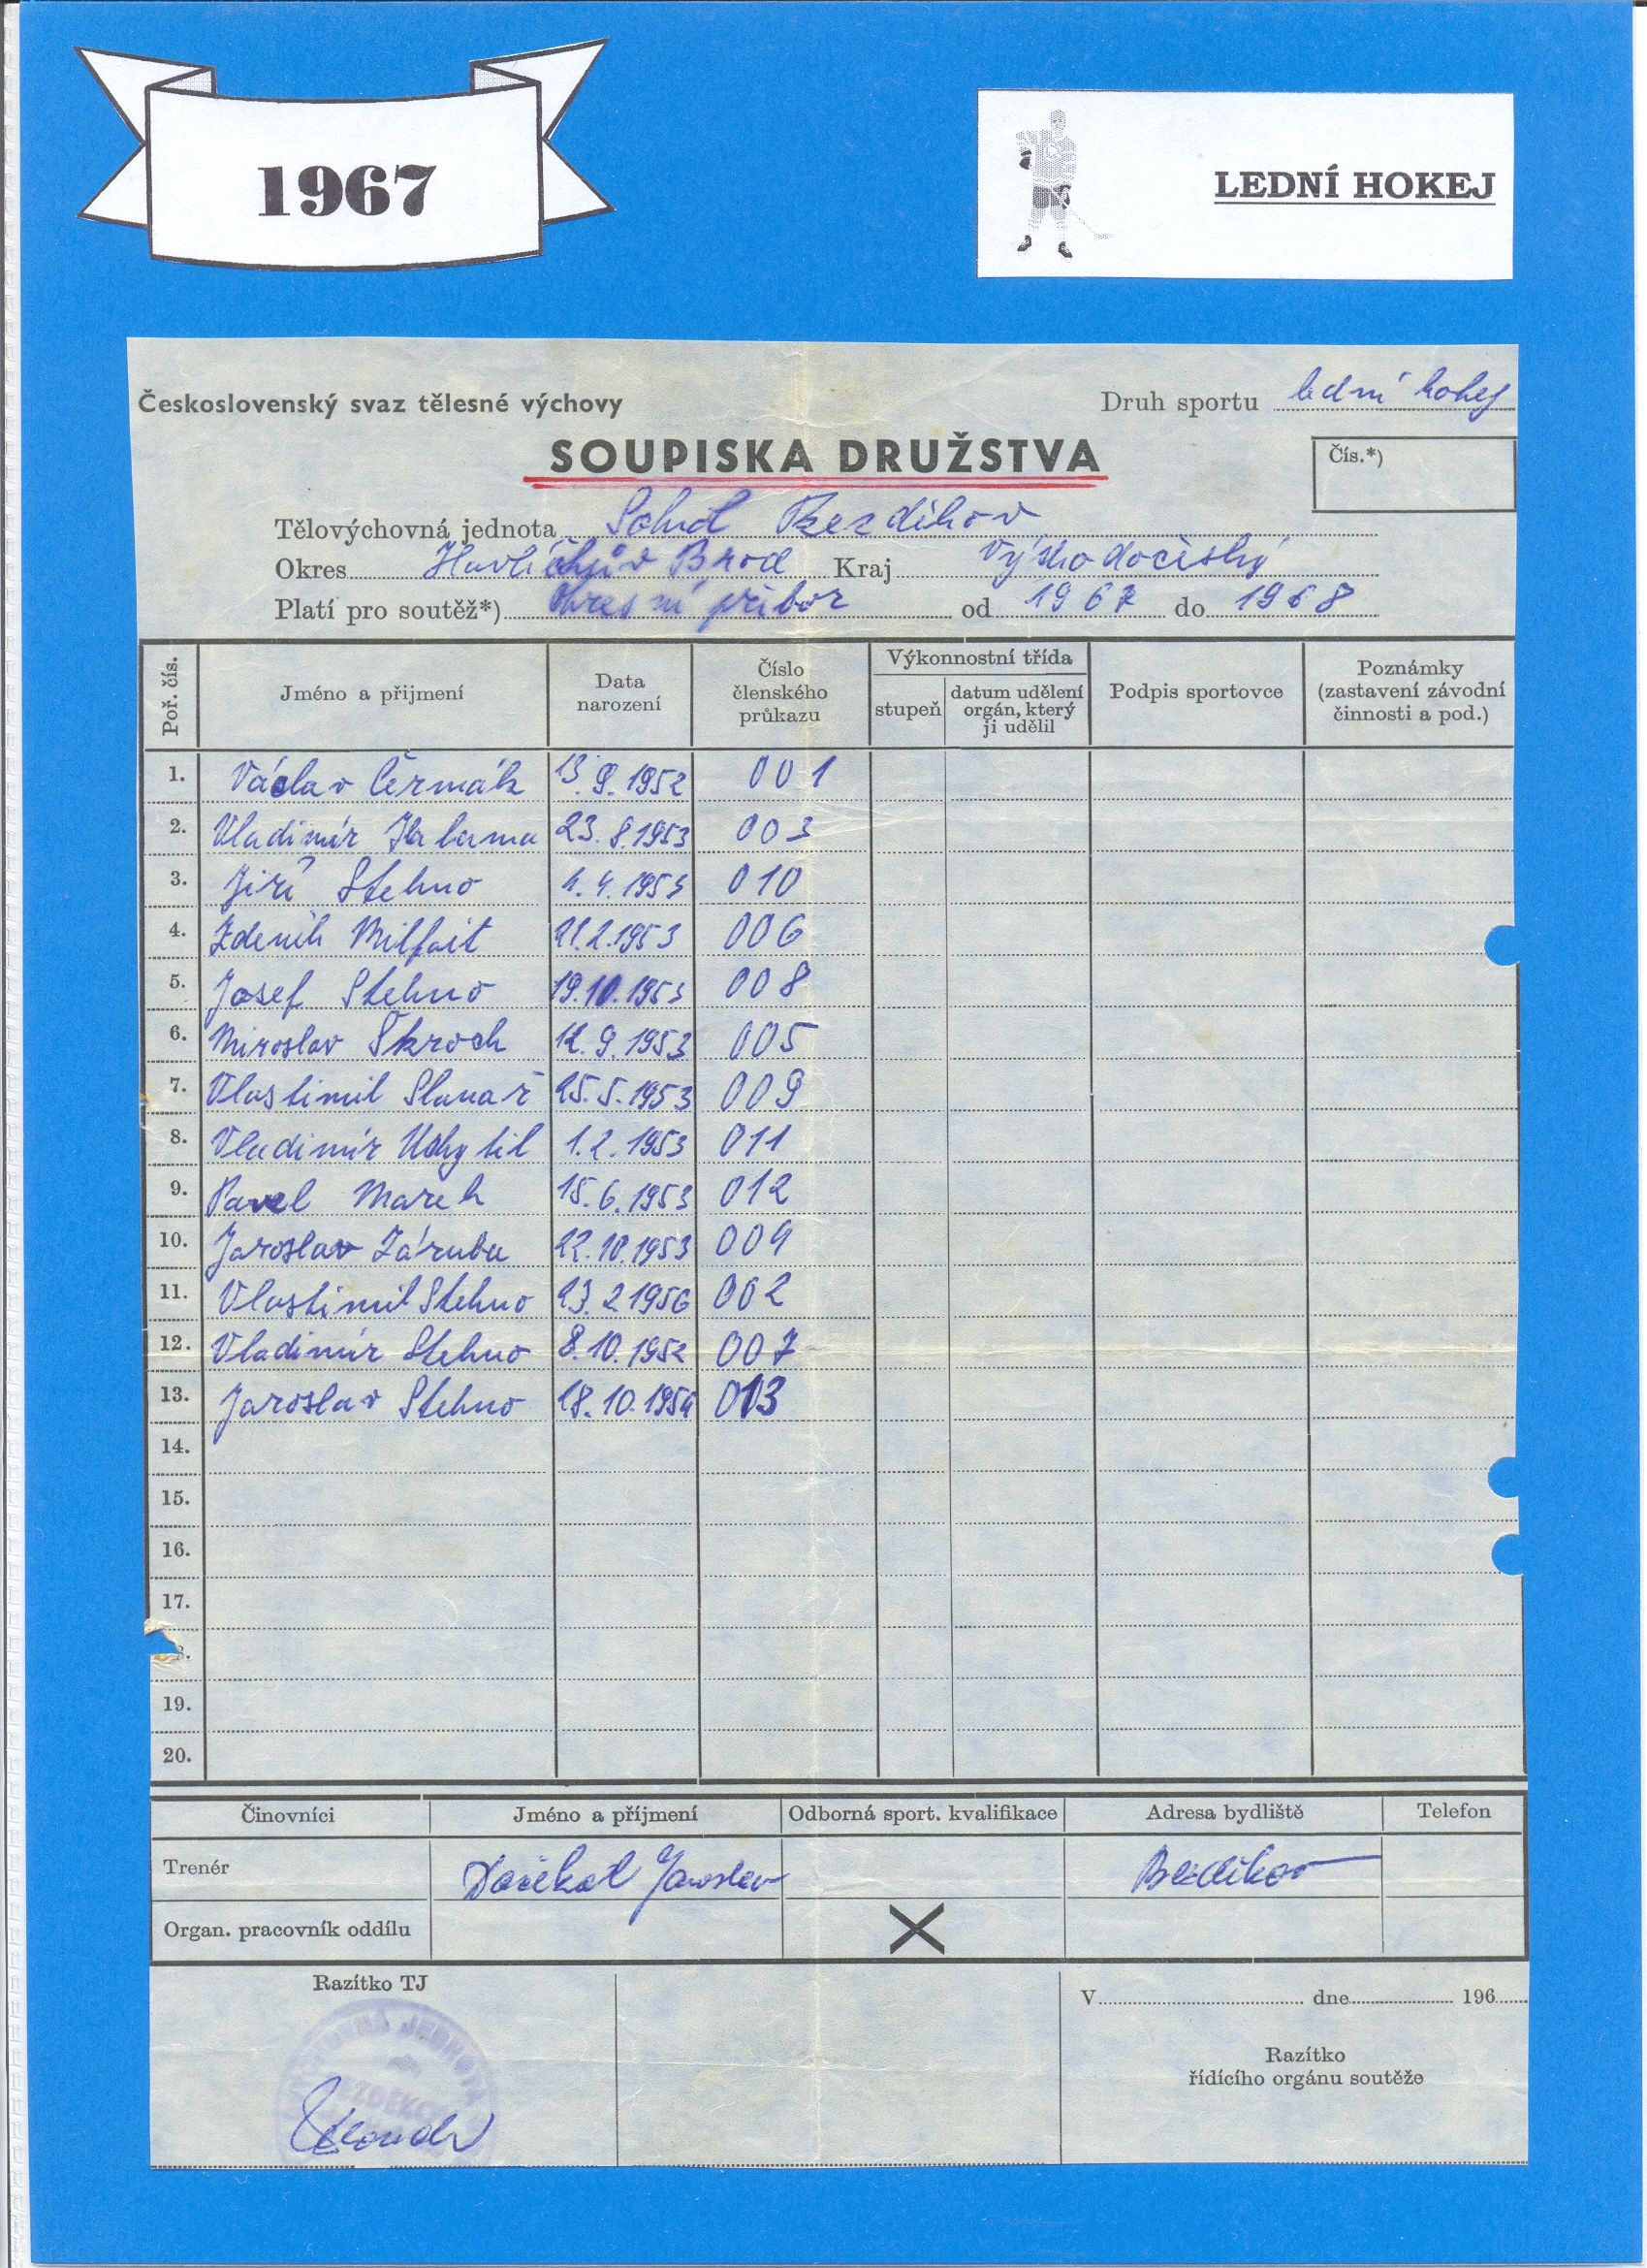 1967
LEDNÍ HOKEJ
Československý svaz tělesné výchovy
Druh sportu lední hokej
SOUPISKA DRUŽSTVA
Čís.*)
Tělovýchovná jednota Sokol Bezděkov
Okres Havlíčkův Brod Kraj Východočeský
Platí pro soutěž*) Okresní přebor od 1967 do 1968
Poř. čís. Jméno a přijmení Data narození Číslo členského průkazu Výkonnostní třída stupeň datum udělení orgán, který ji udělil Podpis sportovce Poznámky (zastavení závodní činnosti a pod.)
1. Václav Čermák 13.9.1952 001
2. Vladimír 23.8.1953 003
3. Jiří Stehno 4.4.1953 010
4. Zdeněk Milfait 21.2.1953 006
5. Josef Stehno 19.10.1953 008
6. Miroslav Škroch 12.9.1953 005
7. Vlastimil Slanař 25.5.1953 009
8. Vladimír Uchytil 1.2.1953 011
9. Pavel Marek 15.6.1953 012
10. Jaroslav Záruba 22.10.1953 004
11. Vlastimil Stehno 23.2.1956 002
12. Vladimír Stehno 8.10.1952 007
13. Jaroslav Stehno 18.10.1954 013
14.
15.
16.
17.
19.
20.
Činovníci Jméno a příjmení Odborná sport. kvalifikace Adresa bydliště Telefon
Trenér Dočekal Jaroslav Bezděkov
Organ. pracovník oddílu
Razítko TJ
V dne 196
Razítko
řídícího orgánu soutěže